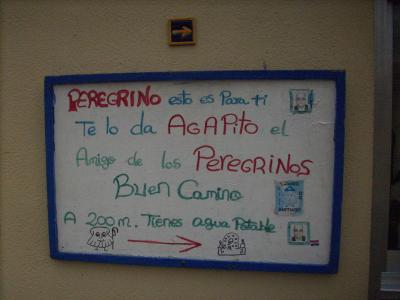 PEREGRINO esto es Para ti
Te lo da AGAPito el
Amigo de los PEREGRINOS
BUEN CAMINO
A 200 m. Tienes agua Potable
SANTIAGO